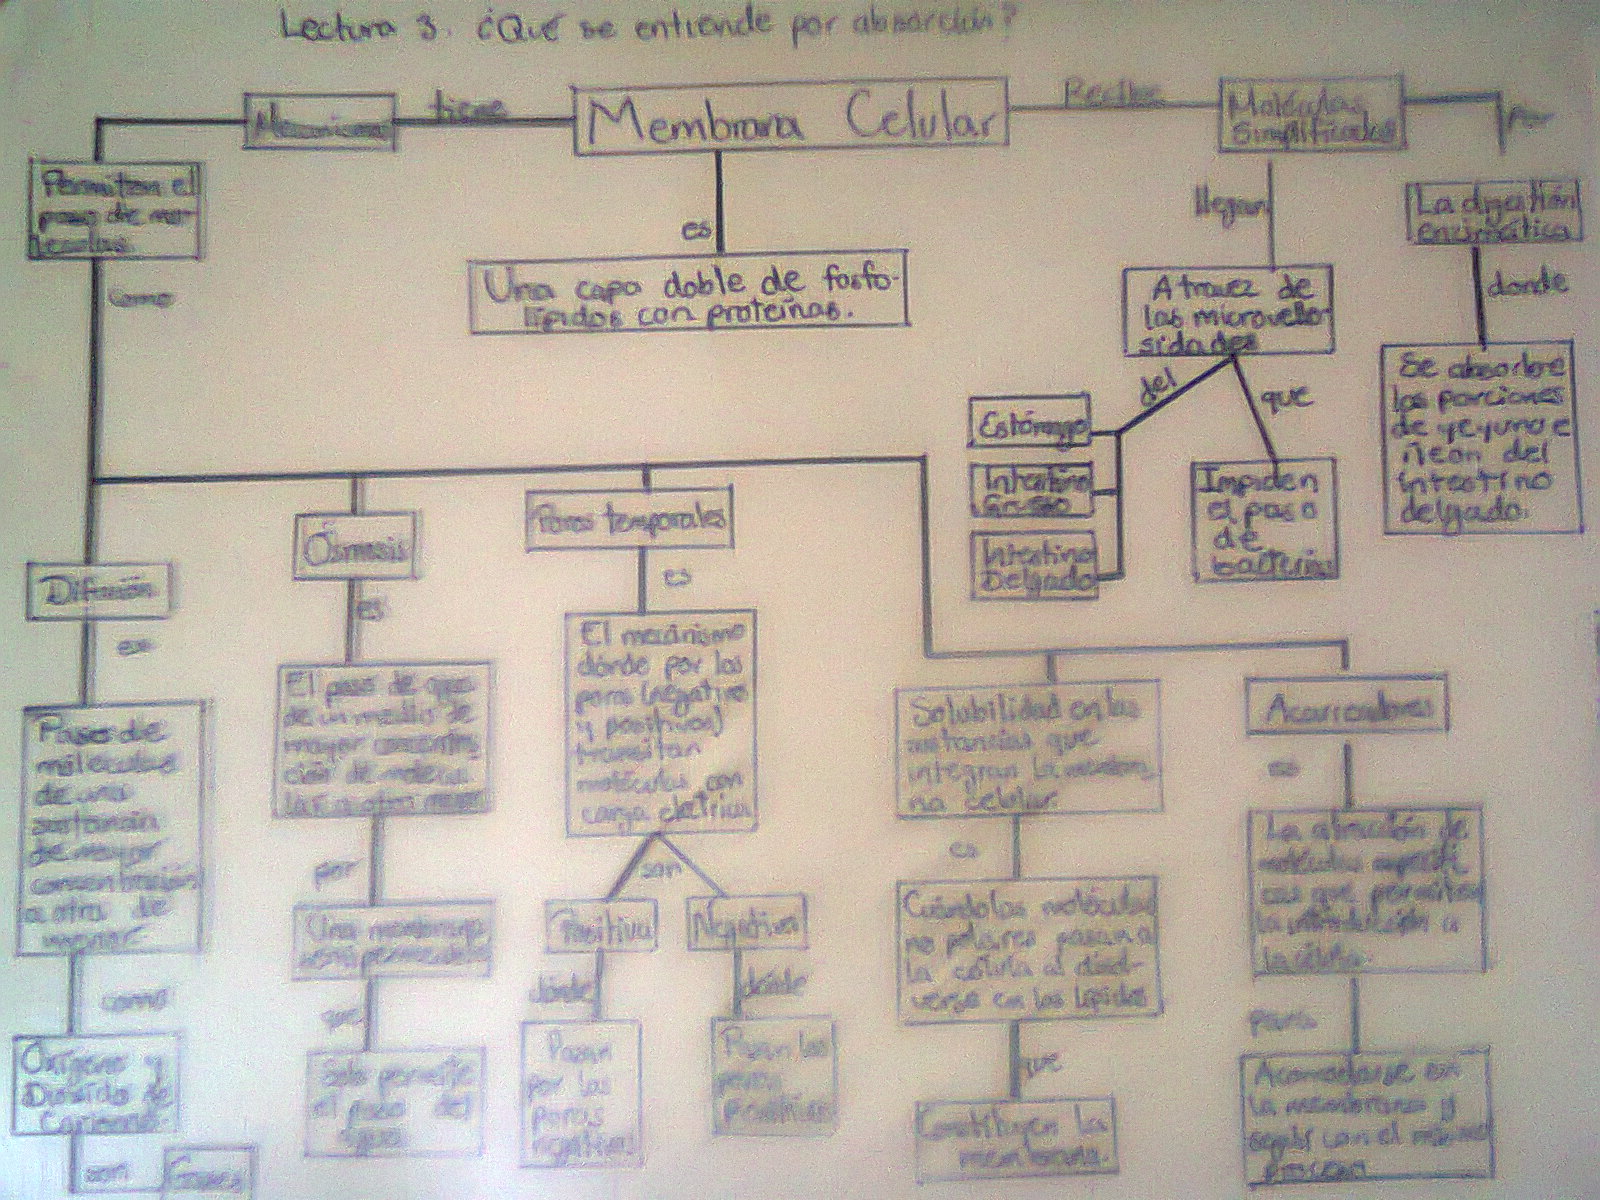 Lectura 3. ¿Qué se entiende por absorción?
Mecanismo
tiene
Membrana Celular
Recibe
Moléculas
Simplificadas
Por
Permiten el
paso de mo-
leculas.
como
es
Una capa doble de fosfo-
lípidos con proteínas.
llegan
A travez de
las microvello-
sidades
del
que
Estómago
Intestino
Grueso
Intestino
Delgado
Impiden
el paso
de
bacterias
La digestión
enzimática
donde
Se absorbe
las porciones
de yeyuno e
ñeon del
intestino
delgado.
Difusión
es
Paso de
moleculas
de una
sustancia
de mayor
concentración
a otra de
menor
como
Oxígeno y
Dioxido de
Carbono
son
Gases
Ósmosis
es
El paso de agua
de un medio de
mayor concentra-
ción de molecu-
lar a otro menor
por
Una membrana
semipermeable
que
Solo permite
el paso del
agua
Poros temporales
es
El mecánismo
dónde por los
poros (negativos
y positivos)
transitan
moléculas con
carga electrica
son
Positivo
Negativos
dónde
dónde
Pasan
por los
poros
negativos
Pasan los
poros
Positivos
Solubilidad en las
sustancias que
integran la membra-
na celular.
es
Cuándo las moléculas
no polares pasan a
la célula al disol-
verse en los lípidos
que
Constituyen la
membrana.
Acarreadores
es
La atracción de
moléculas especifi-
cas que permiten
la introducción a
la célula.
para
Acomodarse en
la membrana y
seguir con el mismo
proceso